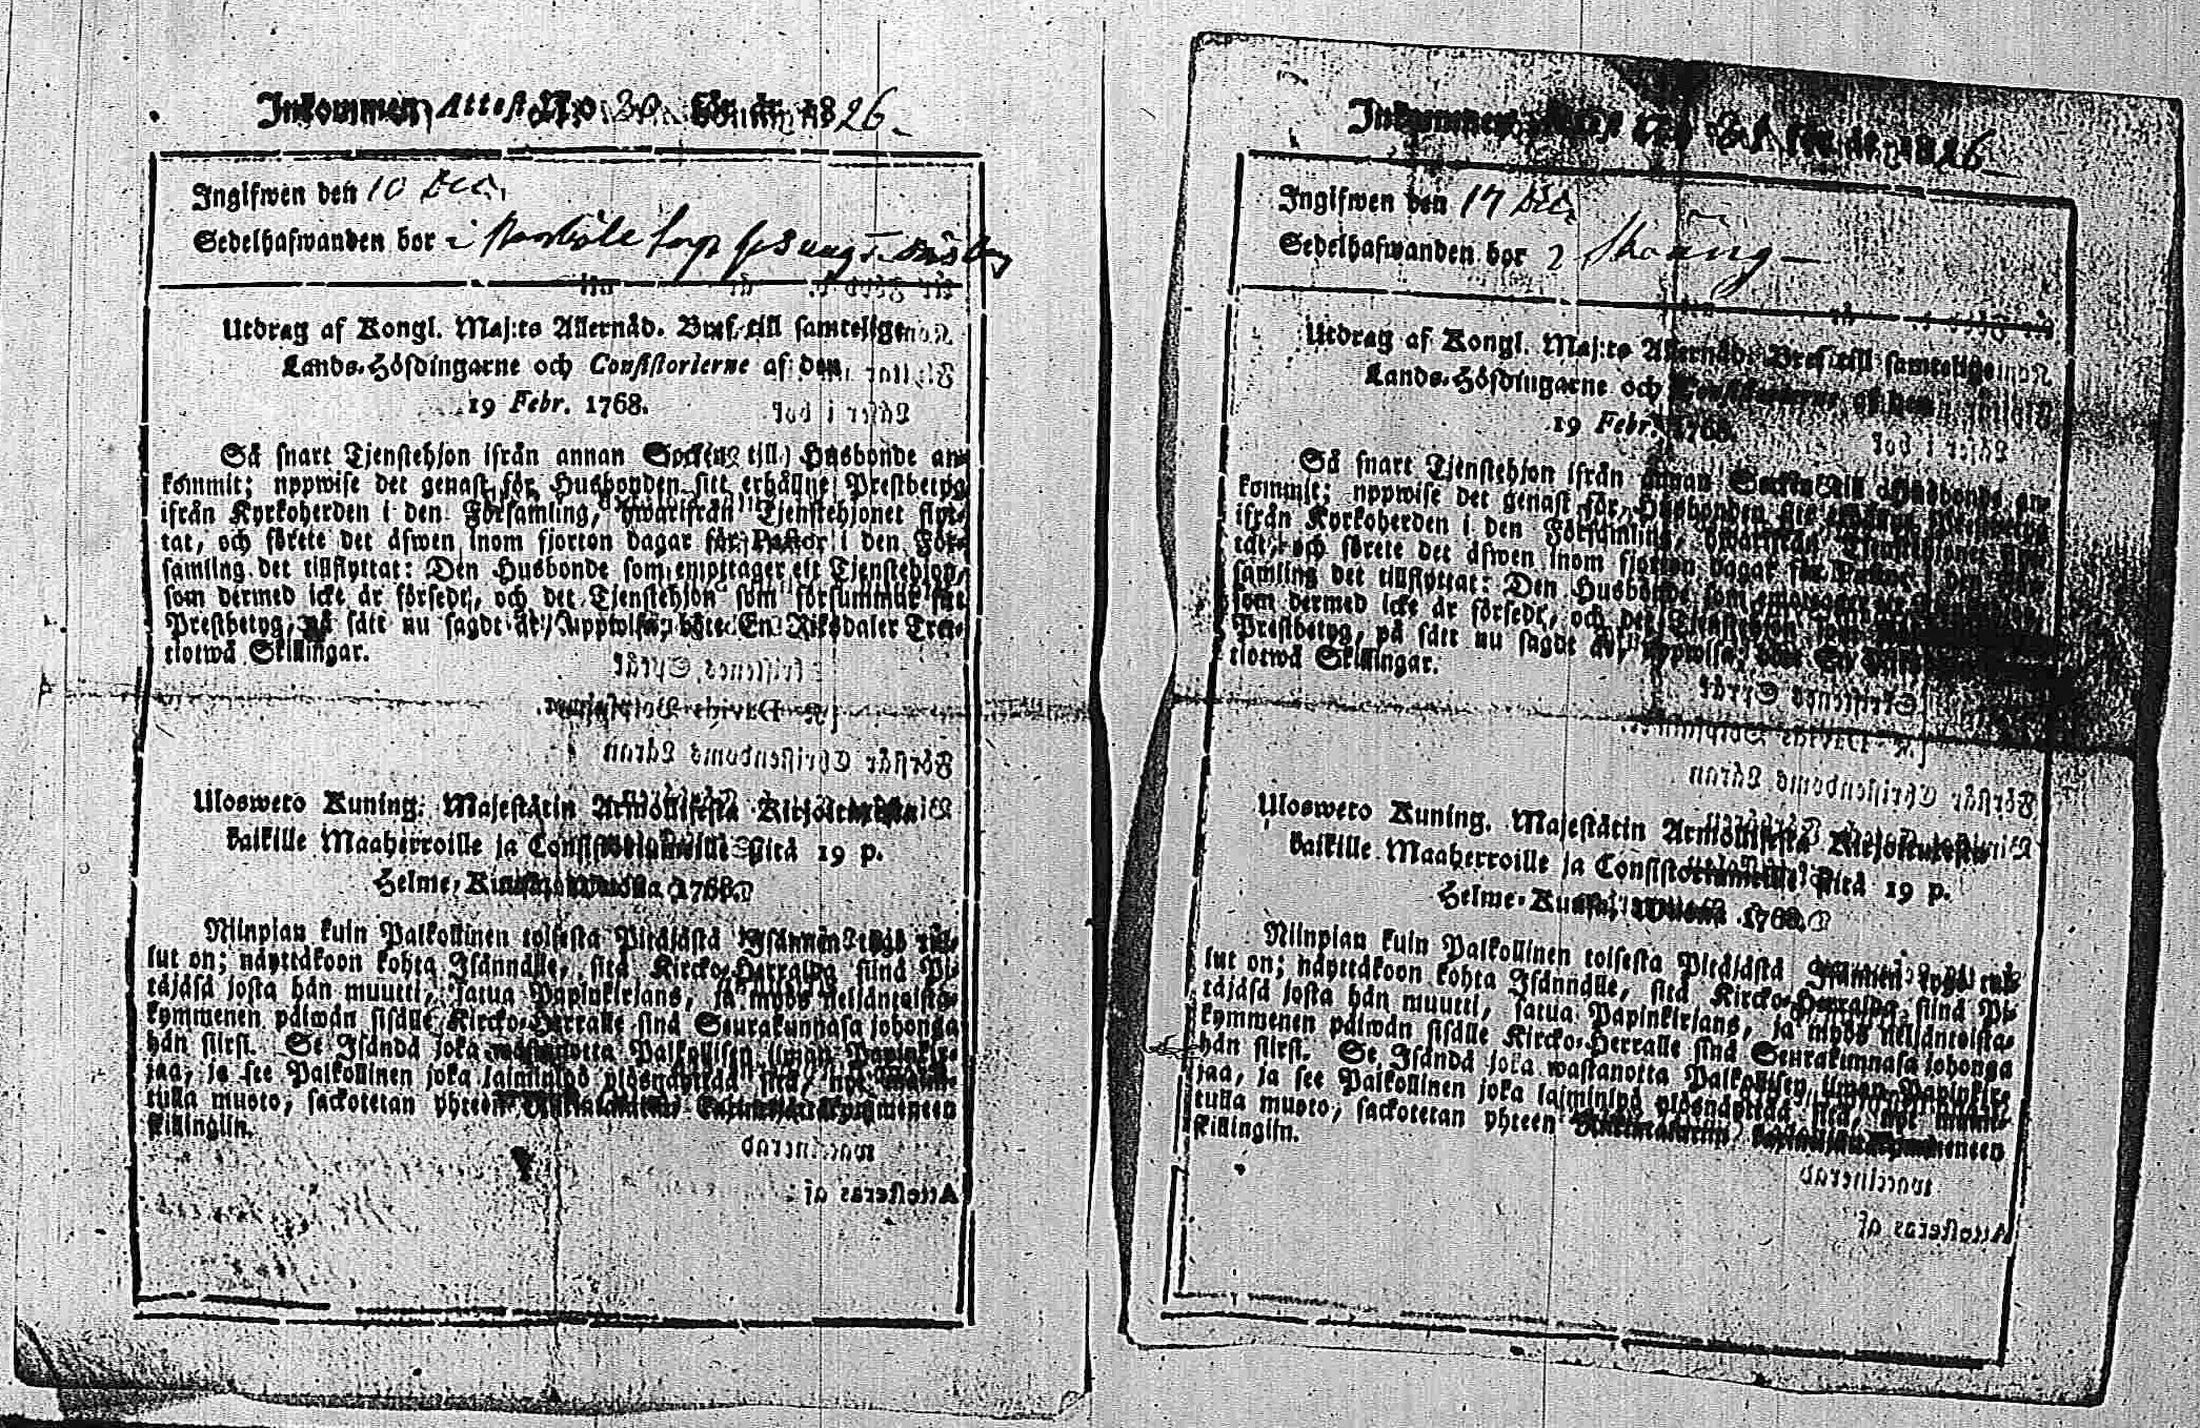 Inkommen Attest No 30 för år 1826
Ingifwen den 10 Dec.
Sedelhafwanden bor i
Utdrag af Kongl. Maj:ts Allernåd. Bref till samtelige
Lands-Höfdingarne och Consistorierne af den
19 Febr. 1768.
Så snart Tjenstehjon ifrån annan Socken till Husbonde an-
kommit; uppwise det genast för Husbonden sitt erhållne Prestbetyg
ifrån Kyrkoherden i den Församling, hwarifrån Tjenstehjonet flyt-
tat, och förete det äfwen inom fjorton dagar för Pastor i den För-
samling det tillflyttat: Den Husbonde som emottager ett Tjenstehjon,
som dermed icke är försedt, och det Tjenstehjon som försummar sitt
Prestbetyg, på sätt nu sagdt är, uppwisa, böte En Riksdaler Tret-
tiotwå Skillingar.
Ulosweto Kuning. Majestätin Armollisesta Kirjoituxesta
kaikille Maaherroille ja Consistoriumeille sitä 19 p.
Helme-Kuusa Wuonna 1768.
Niinpian kuin Palkollinen toisesta Pitäjästä Isännän tygö tul-
lut on; näyttäkoon kohta Isännälle, sitä Kircko-Herralda siinä Pi-
täjäsä josta hän muutti, saatua Papinkirjans, ja myös neljäntoista-
kymmenen päiwän sisälle Kircko-Herralle sinä Seurakunnasa johonga
hän siirsi. Se Isändä joka wastanotta Palkollisen ilman Papinkir-
jaa, ja see Palkollinen joka laiminlyö ylösnäyttää sitä, nyt mainit-
tulla muoto, sackotetan yhteen
skillingiin.
Inkommen för år 1826
Ingifwen den 17 Dec.
Sedelhafwanden bor i Skoäng
Utdrag af Kongl. Maj:ts Allernåd. Bref till samtelige
Lands-Höfdingarne och Consistorierne af den
19 Febr. 1768.
Så snart Tjenstehjon ifrån annan Socken till Husbonde an-
kommit; uppwise det genast för Husbonden sitt erhållne Prestbetyg
ifrån Kyrkoherden i den Församling, hwarifrån Tjenstehjonet flyt-
tat, och förete det äfwen inom fjorton dagar för Pastor i den För-
samling det tillflyttat: Den Husbonde som emottager ett Tjenstehjon,
som dermed icke är försedt, och det Tjenstehjon som
Prestbetyg, på sätt nu sagdt är, uppwisa, böte En
tiotwå Skillingar.
Ulosweto Kuning. Majestätin Armollisesta Kirjoituxesta
kaikille Maaherroille ja Consistoriumeille sitä 19 p.
Helme-Kuusa Wuonna 1768.
Niinpian kuin Palkollinen toisesta Pitäjästä Isännän tygö tul-
lut on; näyttäkoon kohta Isännälle, sitä Kircko-Herralda siinä Pi-
täjäsä josta hän muutti, saatua Papinkirjans, ja myös neljäntoista-
kymmenen päiwän sisälle Kircko-Herralle sinä Seurakunnasa johonga
hän siirsi. Se Isändä joka wastanotta Palkollisen ilman Papinkir-
jaa, ja see Palkollinen joka laiminlyö ylösnäyttää sitä, nyt mainit-
tulla muoto, sackotetan yhteen
skillingiin.